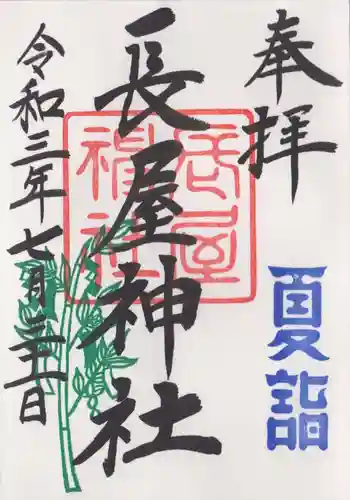 奉拝
夏詣
長屋神社
長屋神社
令和三年七月三十一日